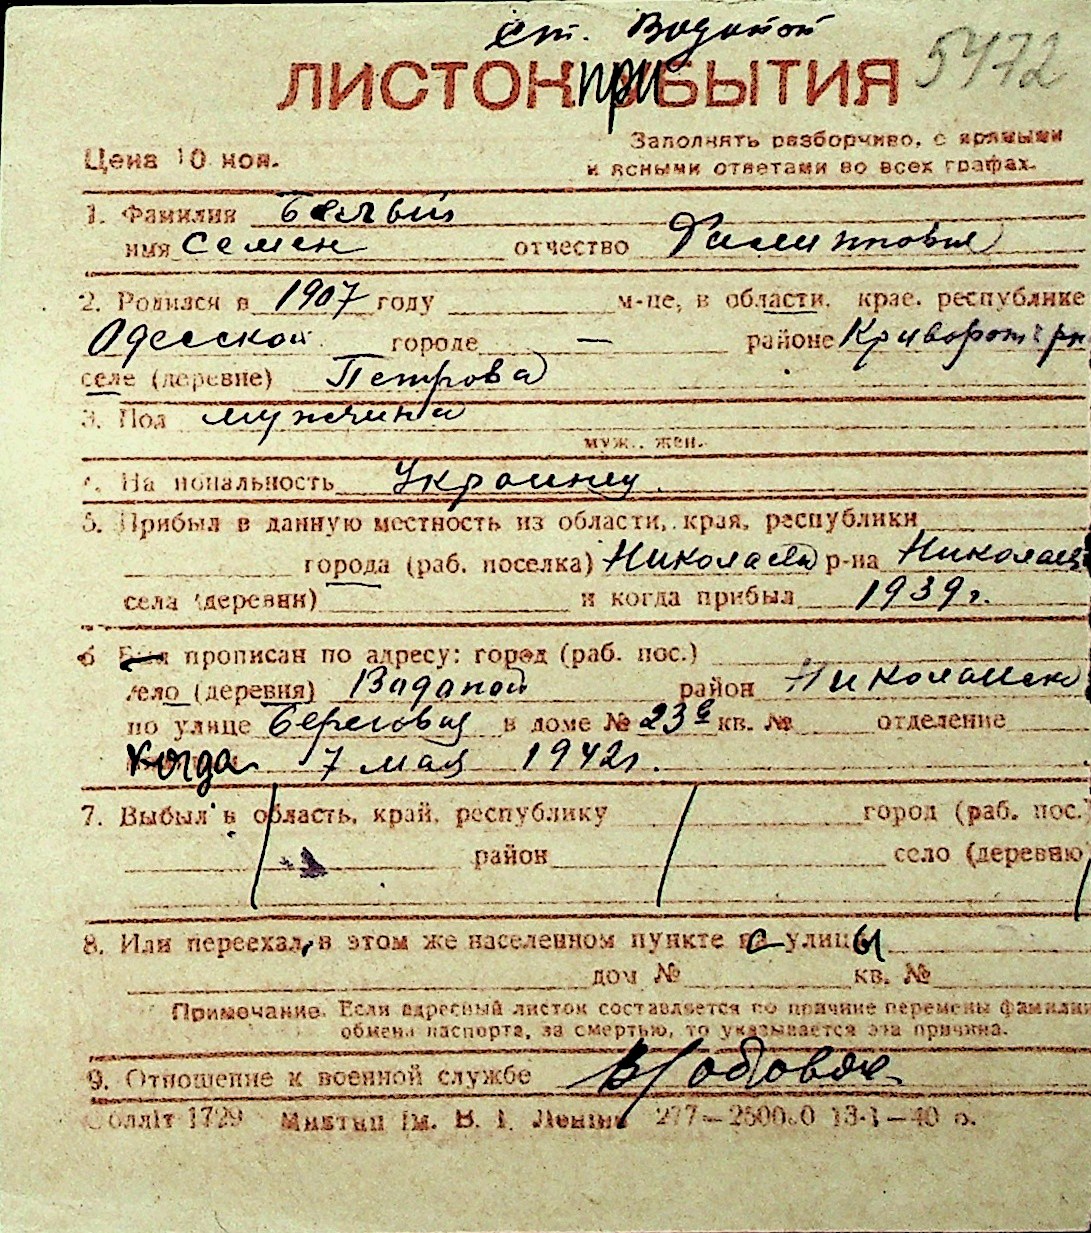 ст. Водопой
5472
ЛИСТОК ПРИБЫТИЯ
Заполнять разборчиво, с прямыми
Цена 10 коп.
и ясными ответами во всех графах.
1. Фамилия Белый
имя Семен отчество
2. Родился в 1907 году м-це, в области, крае, республике
Одесской городе — районе
селе (деревне) Петрова
3. Пол мужчина
муж., жен.
4. Национальность Украинец
5. Прибыл в данную местность из области, края, республики
города (раб. поселка) Николаев р-на Николаев
села (деревни) и когда прибыл 1939 г.
6 прописан по адресу: город (раб. пос.)
село (деревня) Вадапой район Николаевск
по улице Береговая в доме № 23 кв. № отделение
когда 7 мая 1942 г.
7. Выбыл в область, край, республику город (раб. пос.)
район село (деревню)
8. Или переехал, в этом же населенном пункте с улицы
дом № кв. №
Примечание. Если адресный листок составляется по причине перемены фамилии
обмена паспорта, за смертью, то указывается эта причина.
9. Отношение к военной службе
Обллiт 1729 Миктип iм. В. I. Ленiна 277—25000 13-I—40 р.